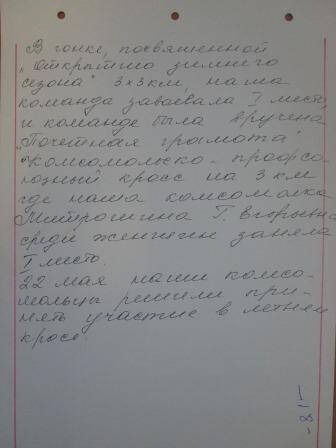 В гонке, посвященной
„Открытию зимнего
сезона" 3х3км, наша
команда завоевала I место
и команде была вручена
„Почетная грамота"
"Комсомольско-профсо
юзный кросс на 3 км
где наша комсомолка
Митрошина Т.
среди женщин заняла
I место.
22 мая наши комсо-
мольцы решили при-
нять участие в летнем
кроссе.